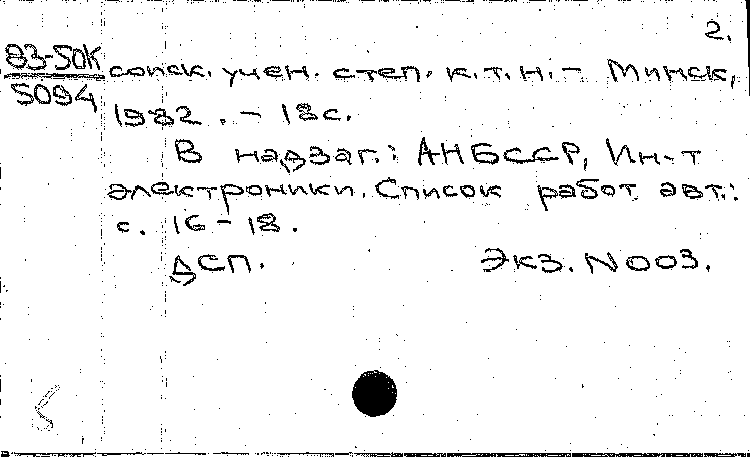 2.
83-50К
5094
соиск. учен. степ. к.т.н. – Минск,
1982. – 18 с.
В надзаг.: АН БССР, Ин-т
электроники. Список работ авт.:
с. 16 – 18.
ДСП. Экз. N 003.